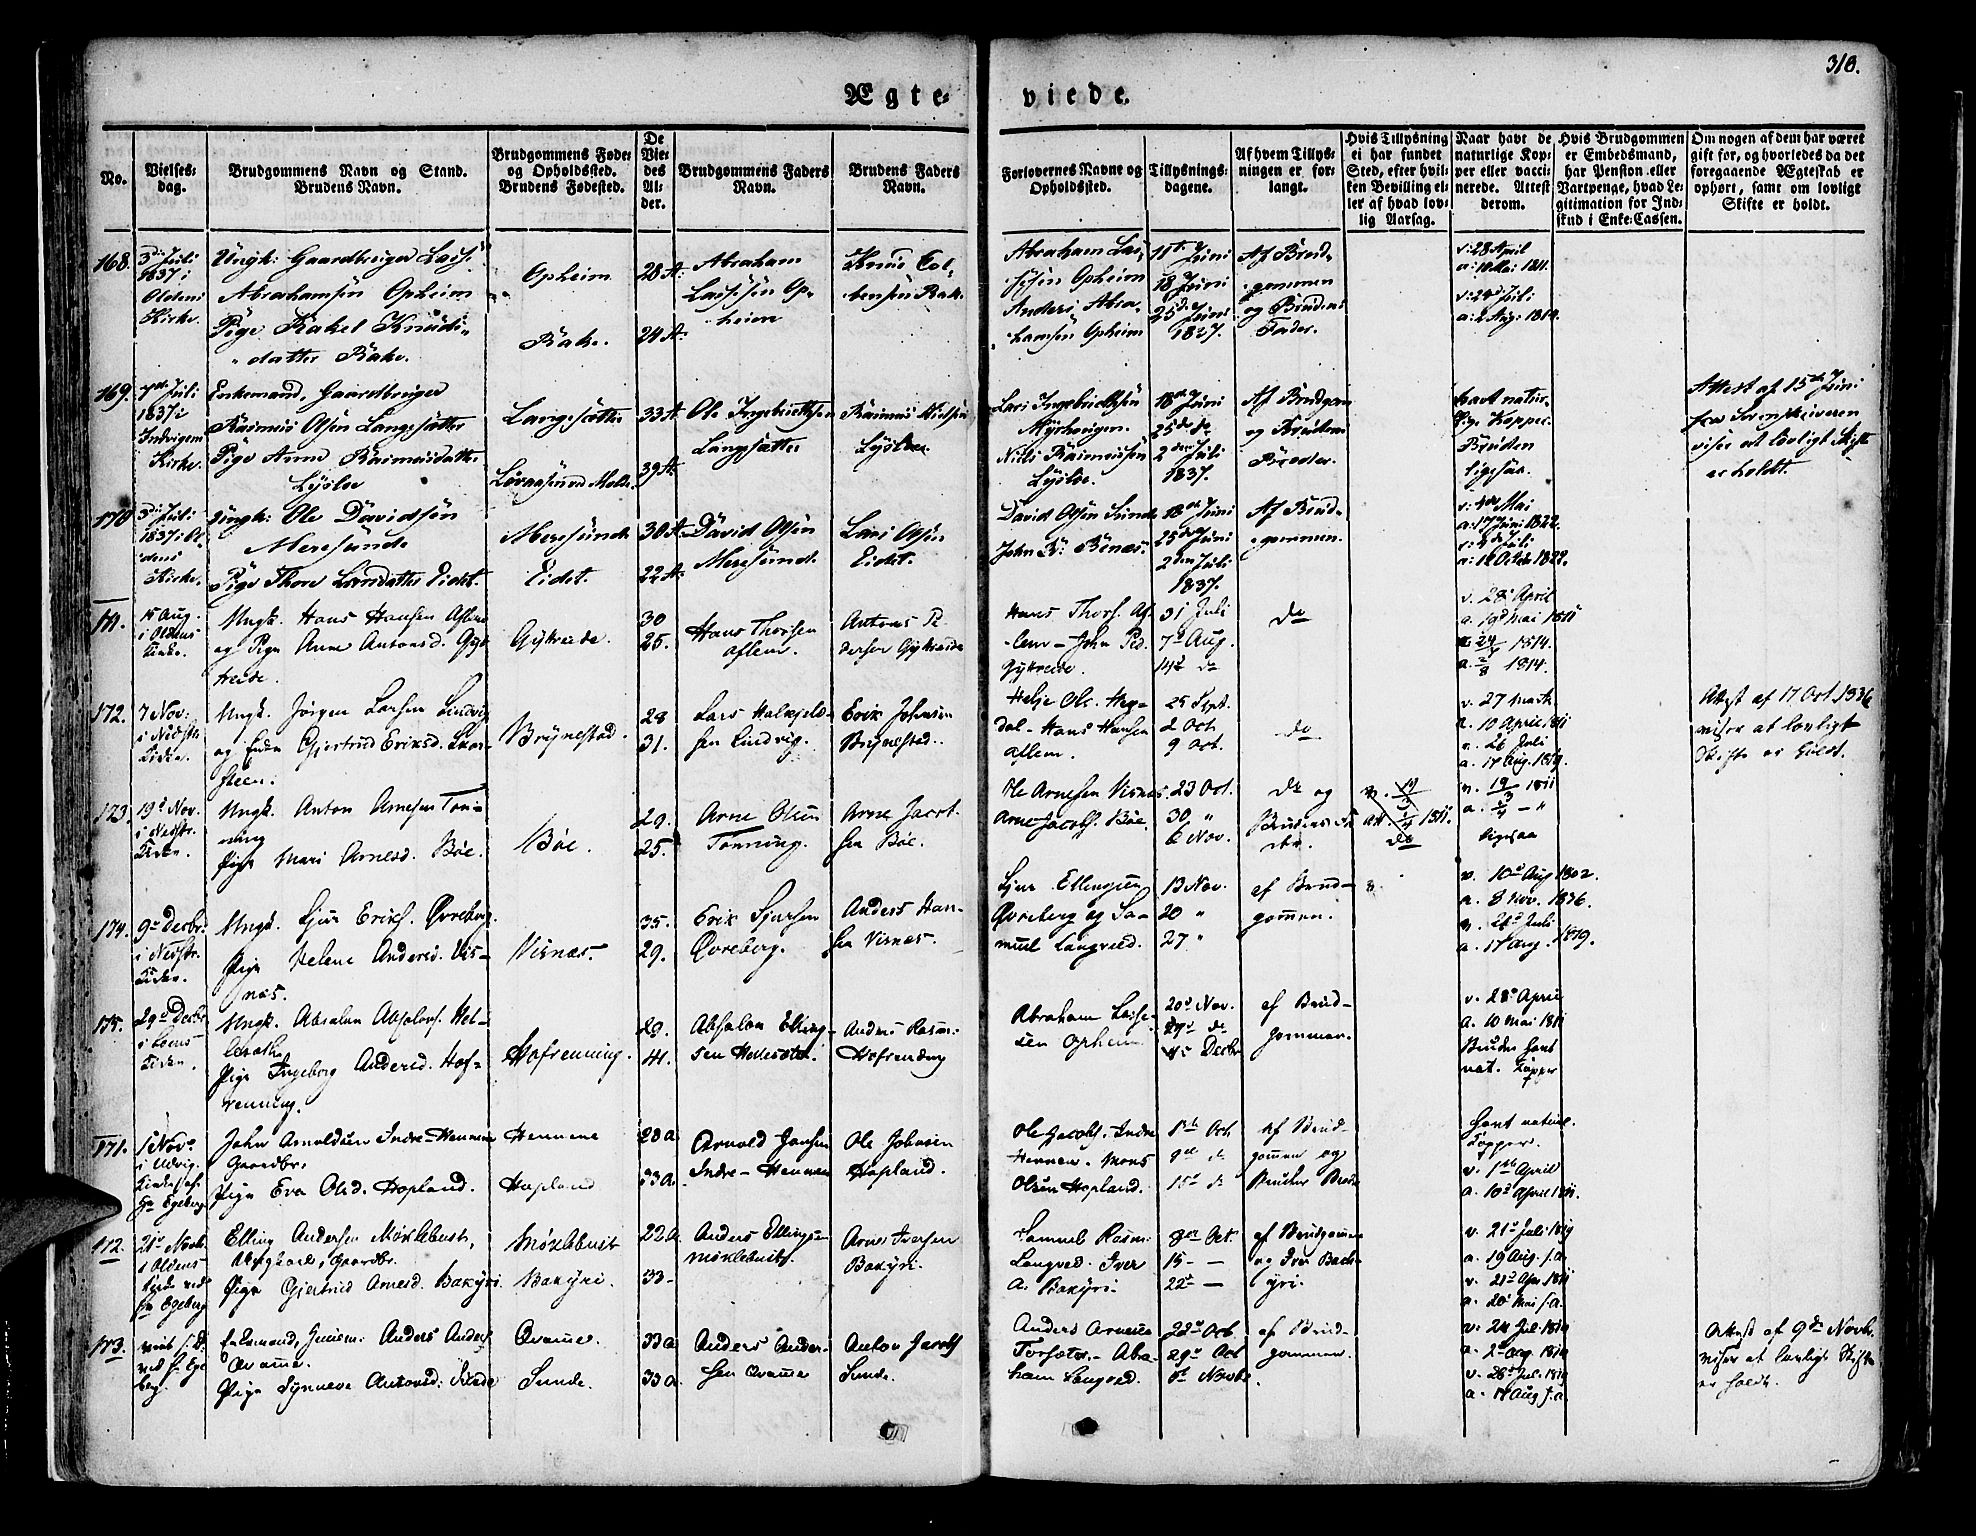 318.
Ægte-
viede.
No.
Vielses-
dag.
Brudgommens Navn og Stand.
Brudens Navn.
Brudgommens Føde-
og Opholdssted.
Brudens Fødested.
De
Vie-
des
Al-
der.
Brudgommens Faders
Navn.
Brudens Faders
Navn.
Forlovernes Navne og
Opholdssted.
Tillysnings-
dagene.
Af hvem Tillys-
ningen er for-
langt.
Hvis Tillysning
ei har fundet
Sted, efter hvil-
ken Bevilling el-
ler af hvad lov-
lig Aarsag.
Naar havt de
naturlige Kop-
per eller vacci-
nerede. Attest
derom.
Hvis Brudgommen
er Embedsmand,
har Pension eller
Vartpenge, hvad Le-
gitimation for Ind-
skud i Enke-Cassen.
Om nogen af dem har været
gift før, og hvorledes da det
foregaaende Ægteskab er
ophørt, samt om lovligt
Skifte er holdt.
168.
3d Juli
1837 i
Oldens
Kirke.
Ungk: Gaardbruger Lasse
Abrahamsen Opheim
Pige Rakel Knuds-
datter Rake.
Opheim
Rake.
28 A:
24 A:
Abraham
Lassesen Op-
heim
Knud Col-
bensen Rake
Abraham Las-
sesen Opheim
Anders Abra-
hamsen Opheim
11te Juni
18 Juni
25de Juni
1837.
Af Brud-
gommen
og Brudens
Fader.
v: 28 April
a: 10 Mai 1811.
v: 24de Juli
a: 2 Aug: 1814.
169.
7de Juli
1837 i
Indvigens
Kirke.
Enkemand, Gaardbruger
Rasmus Olsen Langesætter
Pige Anne Rasmusdatter
Lysloe
Langesætter
33 A.
39 A.
Ole Ingebrethsen
Langsætter
Rasmus Nielsen
Lysloe
Lars Ingebrethsen
Myrhougen.
Niels Rasmussen
Lysloe.
18de Juni
25de do
2den Juli
1837.
Af Brudgom
og Brudens
Broder.
havt natur-
lige Kopper
Bruden
ligesaa.
Attest af 15de Juni
fra Sorenskriveren
viser at lovligt Skifte
er holdt.
170
3d Juli
1837 i Ol-
dens
Kirke.
Ungk: Ole Davidsen
Meresunde
Pige Thore Larsdatter Eidet.
Meresunde
Eidet.
30 A.
22 A.
David Olsen
Meresund.
Lars Olsen
Eidet.
David Olsen Sunde
John R: Bønæs.
18de Juni
25de Juni
2den Juli
1837.
Af Brud-
gommen.
v: 4de Mai
a: 17 Juni 1822.
v: 4de Juli
a: 12 Octob 1822.
171.
15 Aug.
i Oldens
Kirke.
Ungk. Hans Hansen Aflem
og Pige Anne Antonsd. Gyt-
treide.
Gyttreide.
30
25.
Hans Thorsen
Aflem.
Antons Pe-
dersen Gyttreide
Hans Thors. Af-
lem - John Ped.
Gytreide.
31 Juli
7d Aug.
14d do
do
v. 28 April
a. 10d Mai 1811
v. 24/7 1814.
a. 2/8 1814.
172.
7 Nov:
i Nedstr.
Kirke.
Ungk. Jørgen Larsen Lindvig
og Enken Gjertrud Eriksd. Skar-
steen.
Brynestad.
28
31.
Lars Halkjeld-
sen Lindvig.
Erik Johnsen
Brynestad.
Helje Ols. Heg-
dal - Hans Hansen
Aflem.
25 Sept.
2 Oct
9 Oct.
do
v. 27 Marts
a. 10 April 1811
v. 26 Juli
a. 17 Aug. 1819.
Attest af 17 Oct. 1836
viser at lovligt
Skifte er holdt.
173.
19d Nov.
i Nedstr.
Kirke.
Ungk. Anton Arnesen Ton-
ning
Pige Mari Arnesd. Bøe.
Bøe.
29.
25.
Arne Olsen
Tonning.
Arne Jacob-
sen Bøe.
Ole Arnesen Visnæs.
Arne Jacobs. Bøe.
23 Oct.
30 "
6 Nov.
do og
Brudens Fa-
der.
v. 19/3
att. 1/4 1811.
do
v. 19/3 1811
a. 1/4 - "
ligesaa
174.
9d Decbr.
i Nedstr.
Kirken.
Ungk. Sjur Eriks. Øvreberg.
Pige Helene Andersd. Vis-
næs.
Visnæs.
35.
29.
Erik Sjursen
Øvreberg.
Anders Han-
sen Visnæs.
Sjur Ellingsen
Øvreberg og Sa-
muel Langved.
13 Nov.
20 "
27 "
af Brud-
gommen.
v. 10d Aug 1802.
a. 8 Nov. 1836.
v. 26d Juli
a. 17 Aug. 1819.
175.
29d Decbr
i Loens
Kirken.
Ungk. Absalon Absalons. Hel-
Pige Ingeborg Andersd. Hof-
renning.
Hofrenning.
29.
41.
Absalon Elling-
sen
Anders Rasm:
Hofrenning
Abraham Lasse-
sen Opheim.
20d Nov.
27d do
4d Decbr
af Brud-
gommen.
v. 28d April
a. 10 Mai 1811
Bruden havt
nat. Kopper
171.
1 Novr
i Udvig.
Kirke af
Hr. Egeberg
John Arnoldsen Indre-Hennen
Gaardbr.
Pige Eva Olsd. Hopland.
Hennene
Hopland
28 a
33 a.
Arnold Jonsen
Indre-Hennen
Ole Johnsen
Hopland.
Ole Jacobs. Indre
Hennen. Mons
Olsen Hopland.
1ste Oct
9de d.
15de do
af Brud-
gommen og
Brudens Broder
havt naturl.
Kopper.
v. 1ste April
a. 10d April 1811.
172.
21d Novb.
i Oldens
Kirke ved
Hr. Egeberg
Elling Andersen Møklebust,
Ungkarl, Gaardbr.
Pige Gjertrud Arnesd. Bakyri.
Møklebust
Bakyri.
22 a.
33 -
Anders Ellings-
Møklebust.
Arne Iversen
Bakyri.
Samuel Rasm:
Langved. Iver
A. Bakyri.
8de Oct
15 - -
22d -
af Brudgommen
og Iver Bak-
yri.
v. 21d Juli 1819
a. 19 Aug. s.a.
v. 21d Apr. 1811
a. 20d Mai s.a.
173.
ved Hr. Ege
berg.
Enkemand, Anders Anders.
Qvamme.
Pige Synneve Antonsd. Sunde
Qvamme.
Sunde.
33 a
33 a.
Anders Ander-
sen Qvamme
Anton Jacobs
Sunde.
Anders Arnesen
Torsæter. - Abra-
ham Langved.
22d Oct.
29d Oct
5d Novbr
af Brud-
gommen.
v: 24 Jul. 1819
a. 2d Aug. 1819
v. 26d Jul. 1819
a. 17 Aug s.a.
Attest af 9de Novbr.
viser at lovligt Skifte
er holdt.